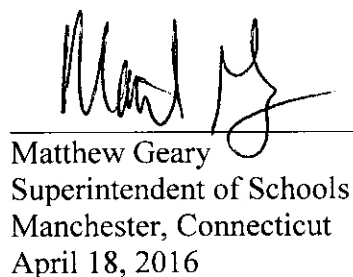 Matthew Geary
Superintendent of Schools
Manchester, Connecticut
April 18, 2016